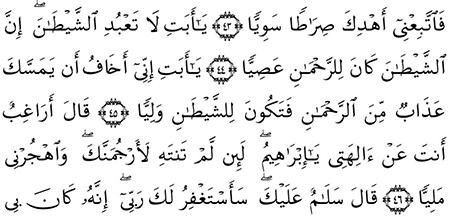 فَٱتَّبِعْنِىٓ أَهْدِكَ صِرَٰطًا سَوِيًّا ﴿٤٣﴾ يَـٰٓأَبَتِ لَا تَعْبُدِ ٱلشَّيْطَـٰنَ ۖ إِنَّ
ٱلشَّيْطَـٰنَ كَانَ لِلرَّحْمَـٰنِ عَصِيًّا ﴿٤٤﴾ يَـٰٓأَبَتِ إِنِّىٓ أَخَافُ أَن يَمَسَّكَ
عَذَابٌ مِّنَ ٱلرَّحْمَـٰنِ فَتَكُونَ لِلشَّيْطَـٰنِ وَلِيًّا ﴿٤٥﴾ قَالَ أَرَاغِبٌ
أَنتَ عَنْ ءَالِهَتِى يَـٰٓإِبْرَٰهِيمُ ۖ لَئِن لَّمْ تَنتَهِ لَأَرْجُمَنَّكَ ۖ وَٱهْجُرْنِى
مَلِيًّا ﴿٤٦﴾ قَالَ سَلَـٰمٌ عَلَيْكَ ۖ سَأَسْتَغْفِرُ لَكَ رَبِّىٓ ۖ إِنَّهُۥ كَانَ بِى